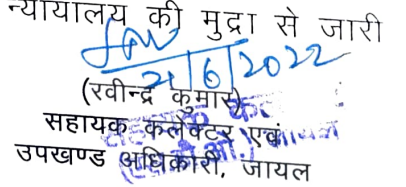 न्यायालय की मुद्रा से जारी
21/6/2022
(रवीन्द्र कुमार)
सहायक कलेक्टर एवं
उपखण्ड अधिकारी, जायल